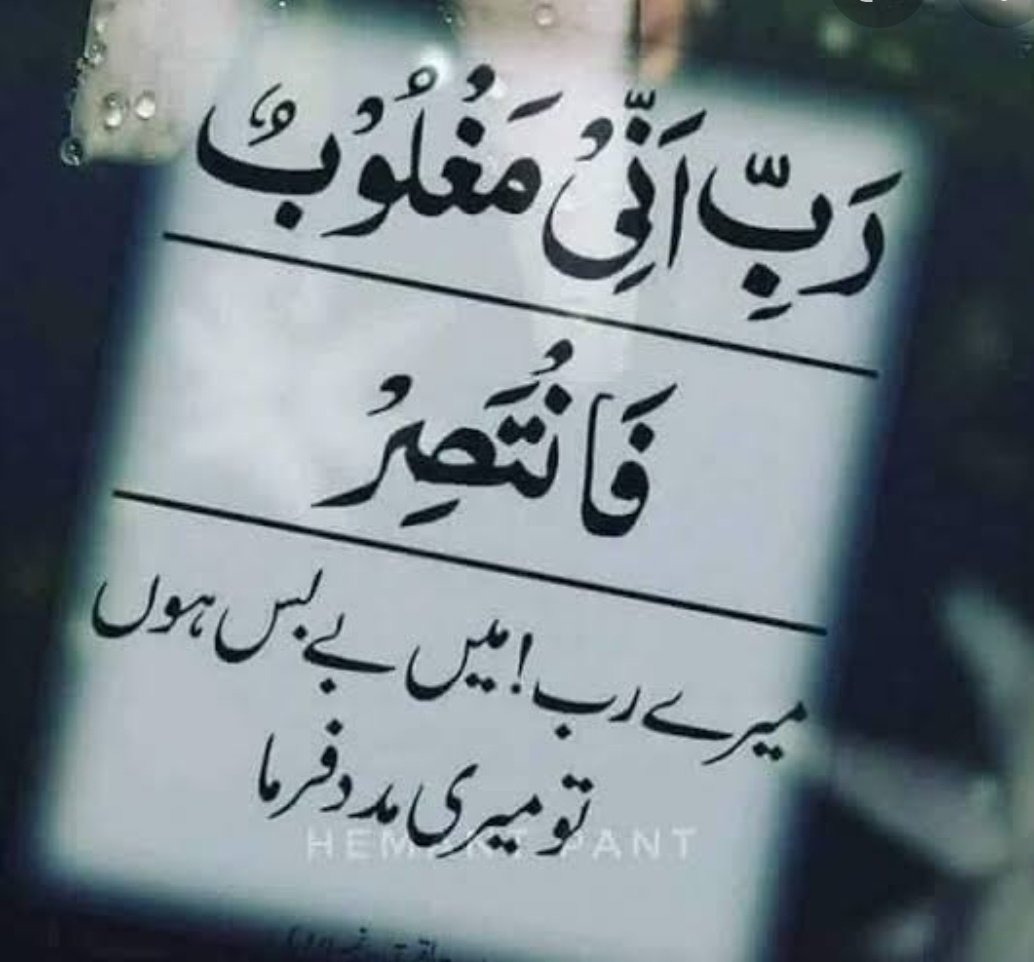 رَبِّ اَنِّىْ مَغْلُوْبٌ
فَا نْتَصِرْ
میرے رب! میں بے بس ہوں
تو میری مدد فرما
HEMANT PANT